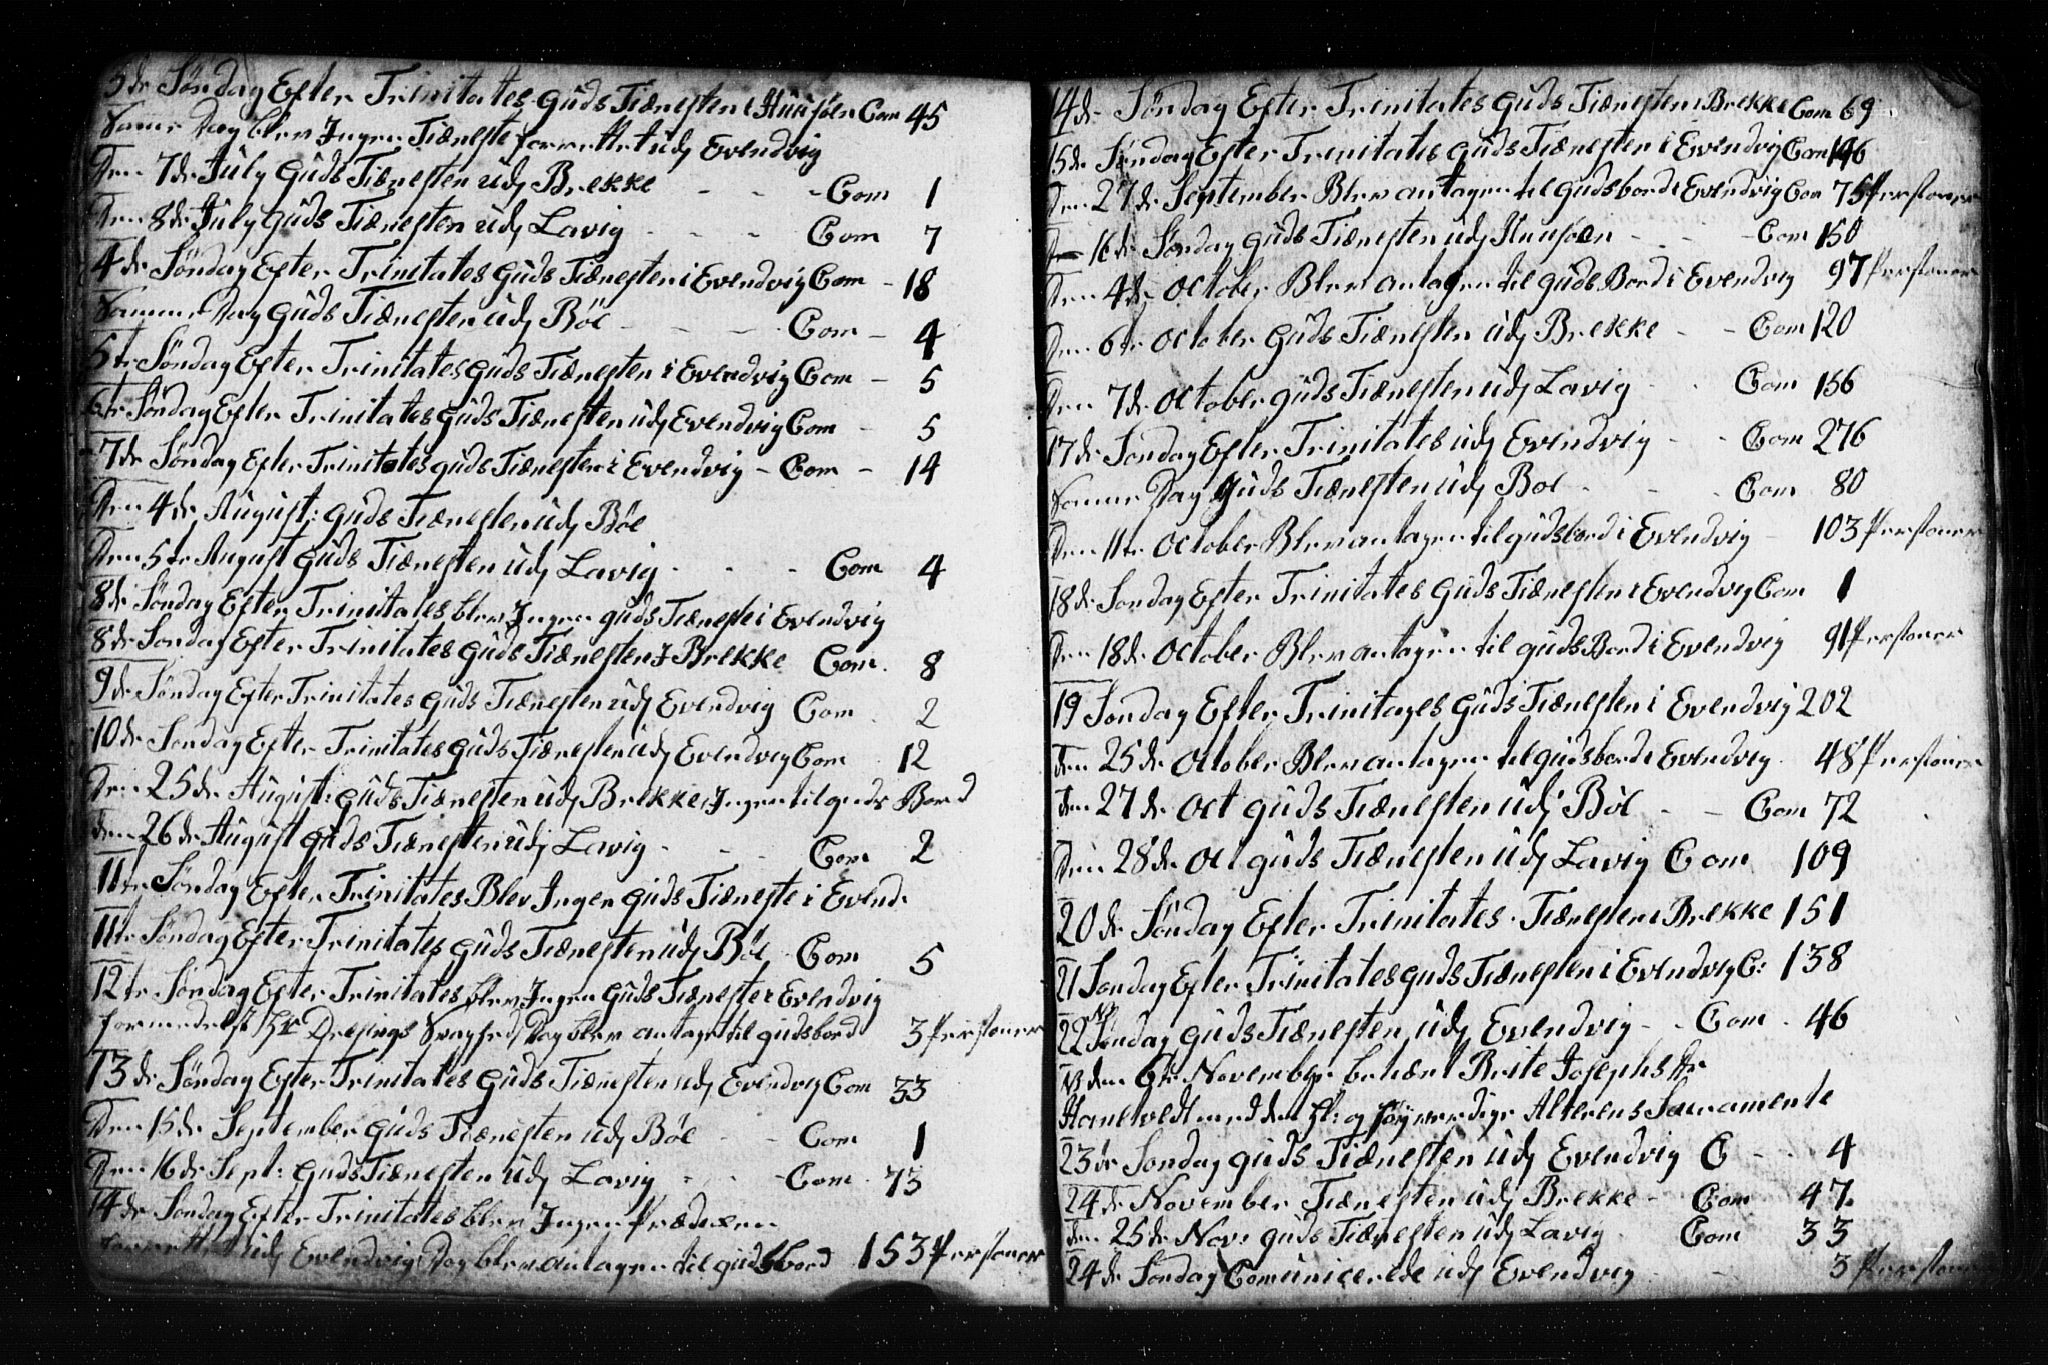 3de Søndag Efter Trinitates Guds Tiænesten i Huusøen Com 45
Samme Dag blev Ingen Tiæneste forrettet udj Evendvig
Den 7de July Guds Tiænesten udj Brekke - - - Com 1
Den 8de July Guds Tiænesten udj Lavig - - - Com 7
4de Søndag Efter Trinitates Guds Tiænesten i Evendvig Com - 18
Samme Dag Guds Tiænesten udj Böe - - - Com - 4
5te Søndag Efter Trinitates Guds Tiænesten i Evendvig Com - 5
6te Søndag Efter Trinitates Guds Tiænesten udj Evendvig Com - 5
7de Søndag Efter Trinitates Guds Tiænesten i Evendvig - Com - 14
Den 4de August: Guds Tiænesten udj Böe
Den 5te August Guds Tiænesten udj Lavig - - - Com 4
8de Søndag Efter Trinitates blev Ingen Guds Tiæneste i Evendvig
8de Søndag Efter Trinitates Guds Tiænesten J Brekke Com. 8
9de Søndag Efter Trinitates Guds Tiænesten udj Evendvig Com. 2
10de Søndag Efter Trinitates Guds Tiænesten udj Evendvig Com 12
Den 25de August: Guds Tiænesten udj Brekke, Ingen til Guds Bord
den 26de August Guds Tiænesten udj Lavig - - - Com 2
11te Søndag Efter Trinitates Blev Ingen Guds Tiæneste i Evend.
11te Søndag Efter Trinitates Guds Tiænesten udj Böe Com 5
12te Søndag Efter Trinitates blev Ingen Guds Tiæneste i Evendvig
formedelst Hr Dresings Svaghed, Dog blev antaget til Gudsbord 3 Personer
13de Søndag Efter Trinitates Guds Tiænesten udj Evendvig Com 33
Den 15de September Guds Tiænesten udj Böe - - Com 1
Den 16de Sept: Guds Tiænesten udj Lavig - - - Com. 73
14de Søndag Efter Trinitates blev Ingen Prædiken
forrettet udj Evendvig, Dog blev antagen til Gudsbord 153 Personer
14de Søndag Efter Trinitates Guds Tiænesten i Brekke Com 69
15de Søndag Efter Trinitates Guds Tiænesten i Evendvig Com 146
Den 27de September Blev antagen til Gudsbord i Evendvig Com 75 Personer
16de Søndag Guds Tiænesten udj Huusøen - - - Com 150
Den 4de October Blev antagen til Guds Bord i Evendvig 97 Personer
Den 6te October Guds Tiænesten udj Brekke - - Com 120
Den 7de October Guds Tiænesten udj Lavig - - Com 156
17de Søndag Efter Trinitates udj Evendvig - - Com 276
Samme Dag Guds Tiænesten udj Boe - - - Com 80
Den 11te October Blev antagen til Gudsbord i Evendvig - 103 Personer
18de Søndag Efter Trinitates Guds Tiænesten i Evendvig Com 1
Den 18de October Blev antagen til Guds Bord i Evendvig 91 Personer
19 Søndag Efter Trinitages Guds Tiænesten i Evendvig 202
den 25de October Blev antagen til Gudsbord i Evendvig. 48 Personer
Den 27de Oct Guds Tiænesten udj Böe - - Com 72
Den 28de Oct Guds Tiænesten udj Lavig Com 109
20de Søndag Efter Trinitates. Tiænesten i Brekke 151
21 Søndag Efter Trinitates Guds Tiænesten i Evendvig C: 138
22 Søndag Guds Tiænesten udj Evendvig - - Com. 46
NB den 6te November beskært Brite Josephs Dr
Hanetvedt med det Hl: og Høyværdige Alterens Sacramente
23de Søndag Guds Tiænesten udj Evendvig C - - 4
24de November Tiænesten udj Brekke - Com 47.
den 25de Nov: Guds Tiænesten udj Lavig Com 33
24de Søndag Comunicerede udj Evendvig - - 3 Personer